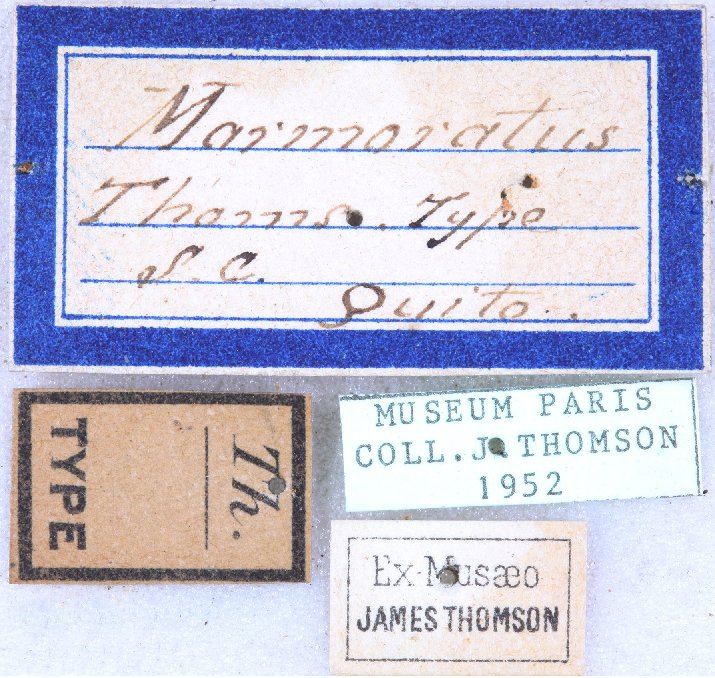 Marmoratus
Thoms. Type
S. C.
Quito.
Th.
TYPE
MUSEUM PARIS
COLL. J. THOMSON
1952
Ex-Musæo
JAMES THOMSON